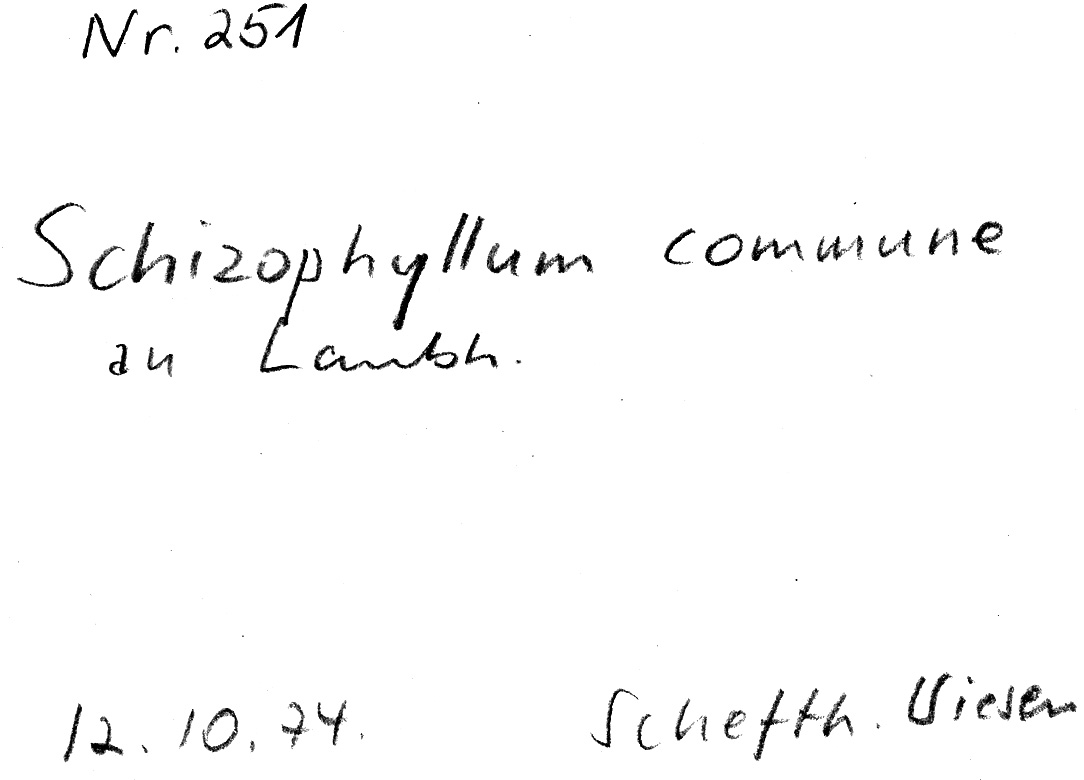 Nr. 251
Schizophyllum commune
an Laubh.
12.10.74.
Schefth. Wiesen